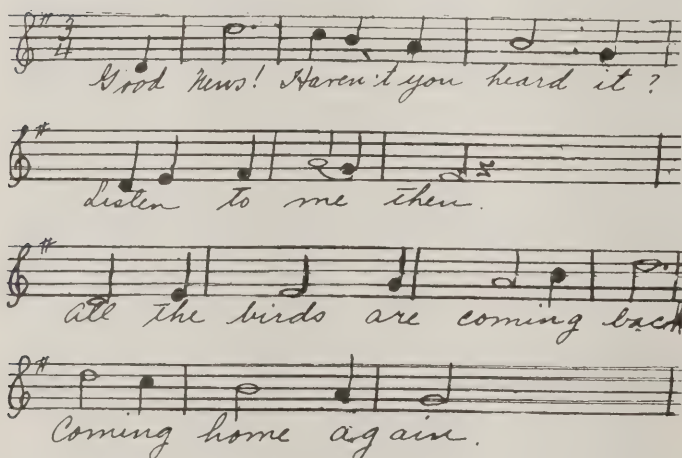 3
4
Good News! Haven't you heard it?
Listen to me then.
All the birds are coming back
Coming home again.